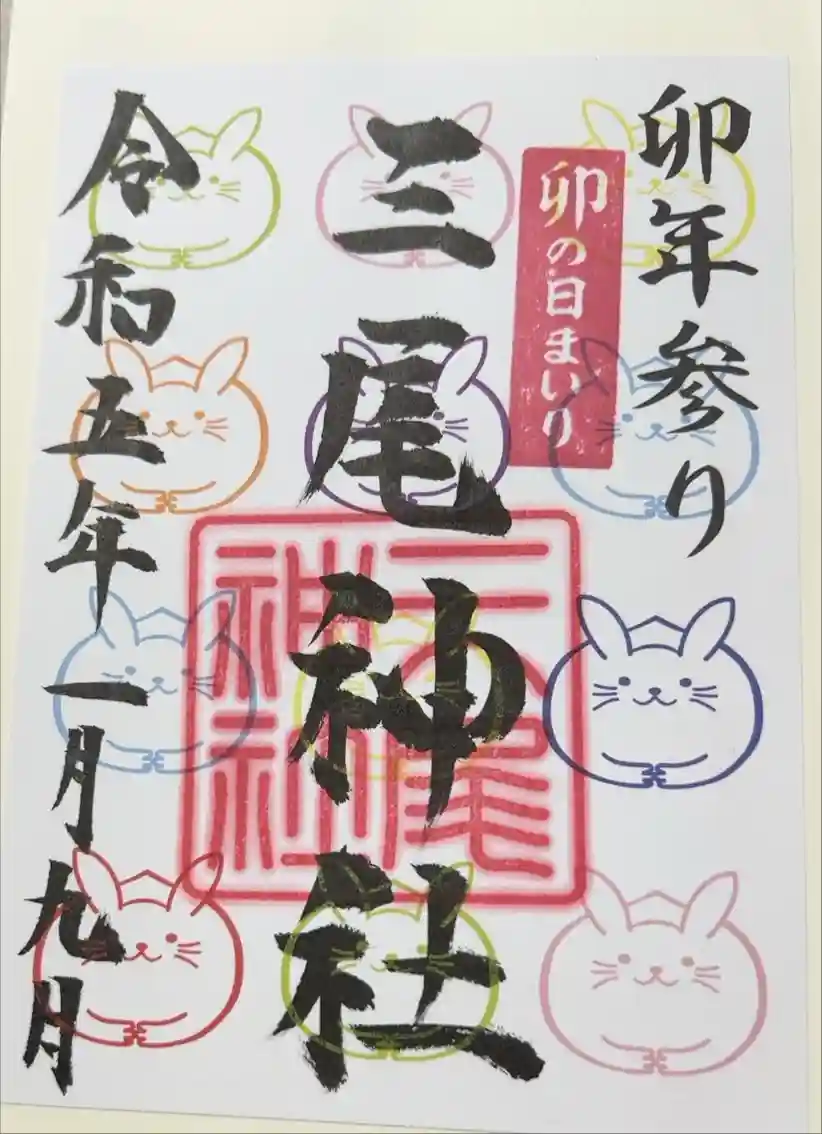 卯年参り
卯の日まいり
三尾神社
三尾神社
令和五年一月九月